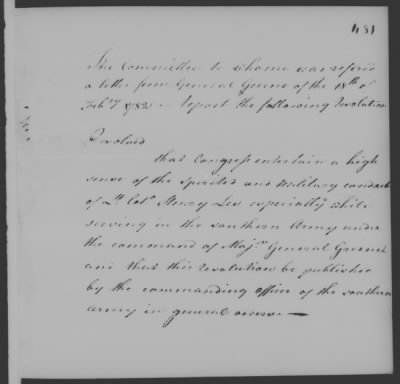 481
The Committee to whome was refer'd
a letter from General Greene of the 18th of
Feby 1782 - Report the following Resolution
Resolved
that Congress entertain a high
sense of the Spirited and Military conduct
of Lt Colo Henry Lee especially while
serving in the southern Army under
the command of Majr General Greene
and that this resolution be published
by the commanding officer of the southern
army in general orders —